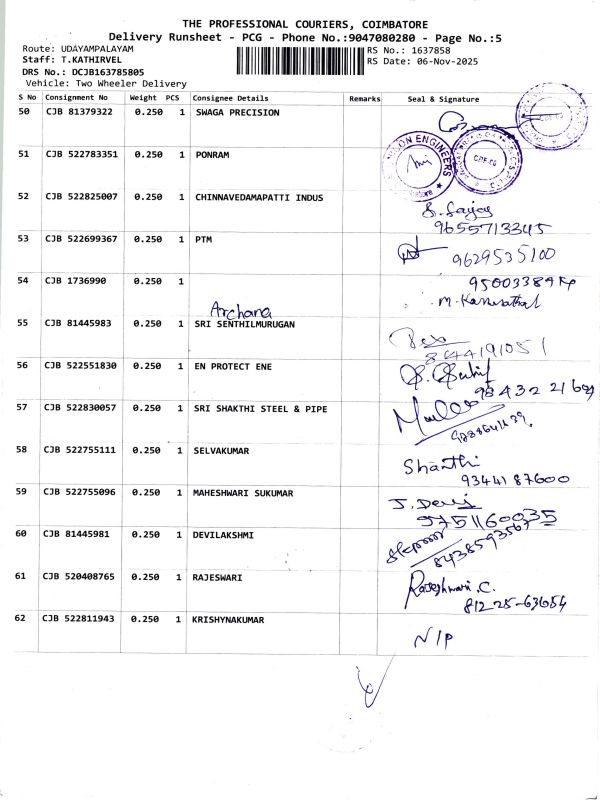 THE PROFESSIONAL COURIERS, COIMBATORE
Delivery Runsheet - PCG - Phone No.:9047080280 - Page No.:5
Route: UDAYAMPALAYAM
Staff: T.KATHIRVEL
DRS No.: DCJB163785805
Vehicle: Two Wheeler Delivery
RS No.: 1637858
RS Date: 06-Nov-2025
S No Consignment No Weight PCS Consignee Details Remarks Seal & Signature
50 CJB 81379322 0.250 1 SWAGA PRECISION
51 CJB 522783351 0.250 1 PONRAM
ENGINEERS
52 CJB 522825007 0.250 1 CHINNAVEDAMAPATTI INDUS
9655713345
53 CJB 522699367 0.250 1 PTM
9629535100
54 CJB 1736990 0.250 1
Archana
55 CJB 81445983 0.250 1 SRI SENTHILMURUGAN
8444191051
56 CJB 522551830 0.250 1 EN PROTECT ENE
57 CJB 522830057 0.250 1 SRI SHAKTHI STEEL & PIPE
58 CJB 522755111 0.250 1 SELVAKUMAR
Shanthi
9344187600
59 CJB 522755096 0.250 1 MAHESHWARI SUKUMAR
J. Devi
9751160035
60 CJB 81445981 0.250 1 DEVILAKSHMI
61 CJB 520408765 0.250 1 RAJESWARI
Rajeshwari.C.
81225-63654
62 CJB 522811943 0.250 1 KRISHYNAKUMAR
N/P